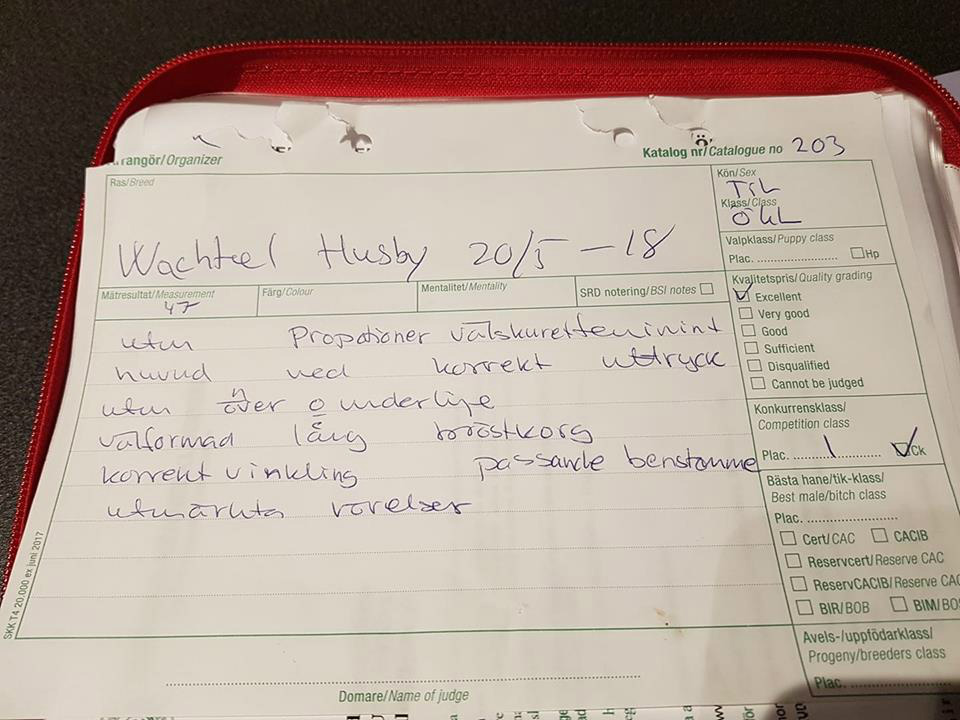 rrangör/Organizer
Katalog nr/Catalogue no 203
Ras/Breed
Kön/Sex
Tik
Klass/Class
Ökl
Wachtel Husby 20/5 -18
Valpklass/Puppy class
Plac. Hp
Mätresultat/Measurement
47
Färg/Colour
Mentalitet/Mentality
SRD notering/BSI notes
Kvalitetspris/Quality grading
Excellent
Very good
Good
Sufficient
Disqualified
Cannot be judged
utm Propationer välskuret feminint
huvud med korrekt uttryck
utm över o underlinje
välformad lång bröstkorg
korrekt vinkling passande benstomme
utmärkta rörelser
Konkurrensklass/
Competition class
Plac. 1 Ck
Bästa hane/tik-klass/
Best male/bitch class
Plac.
Cert/CAC CACIB
Reservcert/Reserve CAC
ReservCACIB/Reserve CAC
BIR/BOB BIM/BO
Avels-/uppfödarklass/
Progeny/breeders class
Plac.
SKK T4 20.000 ex juni 2017
Domare/Name of judge